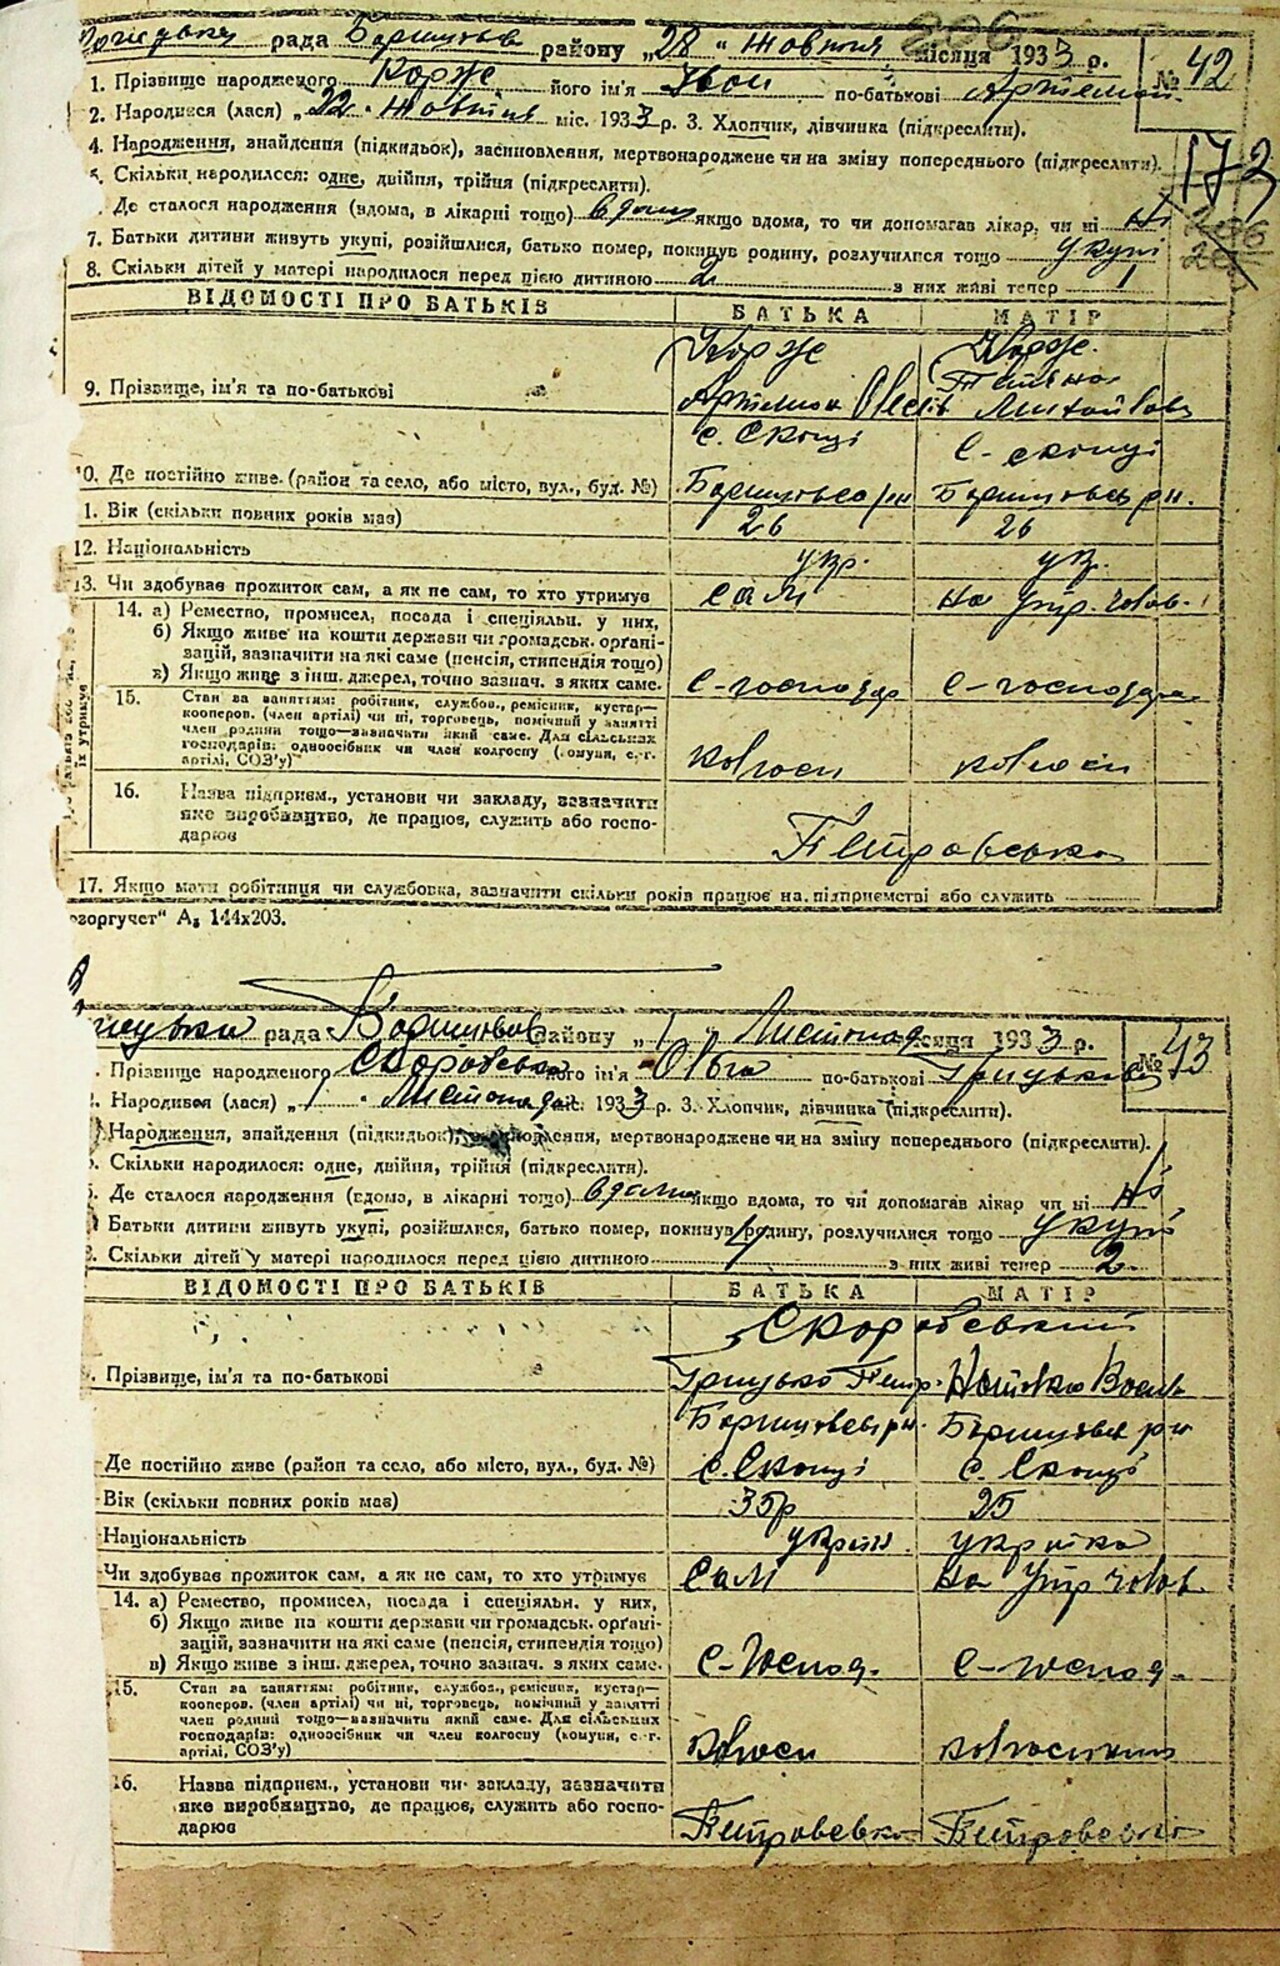 рада Баришівск району „28“ жовтня місяця 1933 р. № 42
1. Прізвище народженого Корж його ім'я Іван по-батькові Артемов.
2. Народився (лася) „22“ жовтня міс. 1933 р. 3. Хлопчик, дівчинка (підкреслити).
172
4. Народження, знайдення (підкидьок), засиновлення, мертвонароджене чи на зміну попереднього (підкреслити).
5. Скільки народилося: одне, двійня, трійня (підкреслити).
Де сталося народження (вдома, в лікарні тощо) вдома якщо вдома, то чи допомагав лікар, чи ні ні
7. Батьки дитини живуть укупі, розійшлися, батько помер, покинув родину, розлучилися тощо укупі
8. Скільки дітей у матері народилося перед цією дитиною 2 з них живі тепер 1
ВІДОМОСТІ ПРО БАТЬКІВ БАТЬКА МАТІР
Корж Корж.
9. Прізвище, ім'я та по-батькові Артем Олекс Тетяна Михайлова
с. Скопці с. Скопці
10. Де постійно живе (район та село, або місто, вул., буд. №) Баришівськ рн Баришівськ рн.
1. Вік (скільки повних років має) 26 26
12. Національність укр. укр.
13. Чи здобуває прожиток сам, а як не сам, то хто утримує сам на утр. чолов.
14. а) Ремество, промисел, посада і спеціяльн. у них,
б) Якщо живе на кошти держави чи громадськ. орґані-
зацій, зазначити на які саме (пенсія, стипендія тощо)
в) Якщо живе з інш. джерел, точно зазнач. з яких саме. с-господар с-господар
їх утримує
15. Стан за заняттям: робітник, службов., ремісник, кустар—
кооперов. (член артілі) чи ні, торговець, помічний у занятті
член родини тощо—зазначити який саме. Для сільських
господарів: одноосібник чи член колгоспу (комуни, с.-г.
артілі, СОЗ'у) колгосп колгосп
16. Назва підприєм., установи чи закладу, зазначити
яке виробництво, де працює, служить або госпо-
дарює Петровська
17. Якщо мати робітниця чи службовка, зазначити скільки років працює на підприємстві або служить
„зоргучет“ А₅ 144х203.
рада Баришівськ району „1“ Листопад місяця 1933 р. № 43
Прізвище народженого його ім'я Ольга по-батькові Грицькова
Народився (лася) „1“ Листопад міс. 1933 р. 3. Хлопчик, дівчинка (підкреслити).
Народження, знайдення (підкидьок), засиновлення, мертвонароджене чи на зміну попереднього (підкреслити).
Скільки народилося: одне, двійня, трійня (підкреслити).
Де сталося народження (вдома, в лікарні тощо) вдома якщо вдома, то чи допомагав лікар чи ні ні
Батьки дитини живуть укупі, розійшлися, батько помер, покинув родину, розлучилися тощо укупі
Скільки дітей у матері народилося перед цією дитиною з них живі тепер 2
ВІДОМОСТІ ПРО БАТЬКІВ БАТЬКА МАТІР
Прізвище, ім'я та по-батькові Грицько Петр. Наталка Васил
Баришівськ рн. Баришівськ рн
Де постійно живе (район та село, або місто, вул., буд. №) с. Скопці с. Скопці
Вік (скільки повних років має) 35р 25
Національність україн. українка
Чи здобуває прожиток сам, а як не сам, то хто утримує сам на утр чолов.
14. а) Ремество, промисел, посада і спеціяльн. у них,
б) Якщо живе на кошти держави чи громадськ. орґані-
зацій, зазначити на які саме (пенсія, стипендія тощо)
в) Якщо живе з інш. джерел, точно зазнач. з яких саме. с-господ. с-господ.
15. Стан за заняттям: робітник, службов., ремісник, кустар—
кооперов. (член артілі) чи ні, торговець, помічний у занятті
член родини тощо—зазначити який саме. Для сільських
господарів: одноосібник чи член колгоспу (комуни, с.-г.
артілі, СОЗ'у) колгосп
16. Назва підприєм., установи чи закладу, зазначити
яке виробництво, де працює, служить або госпо-
дарює Петровська Петровська